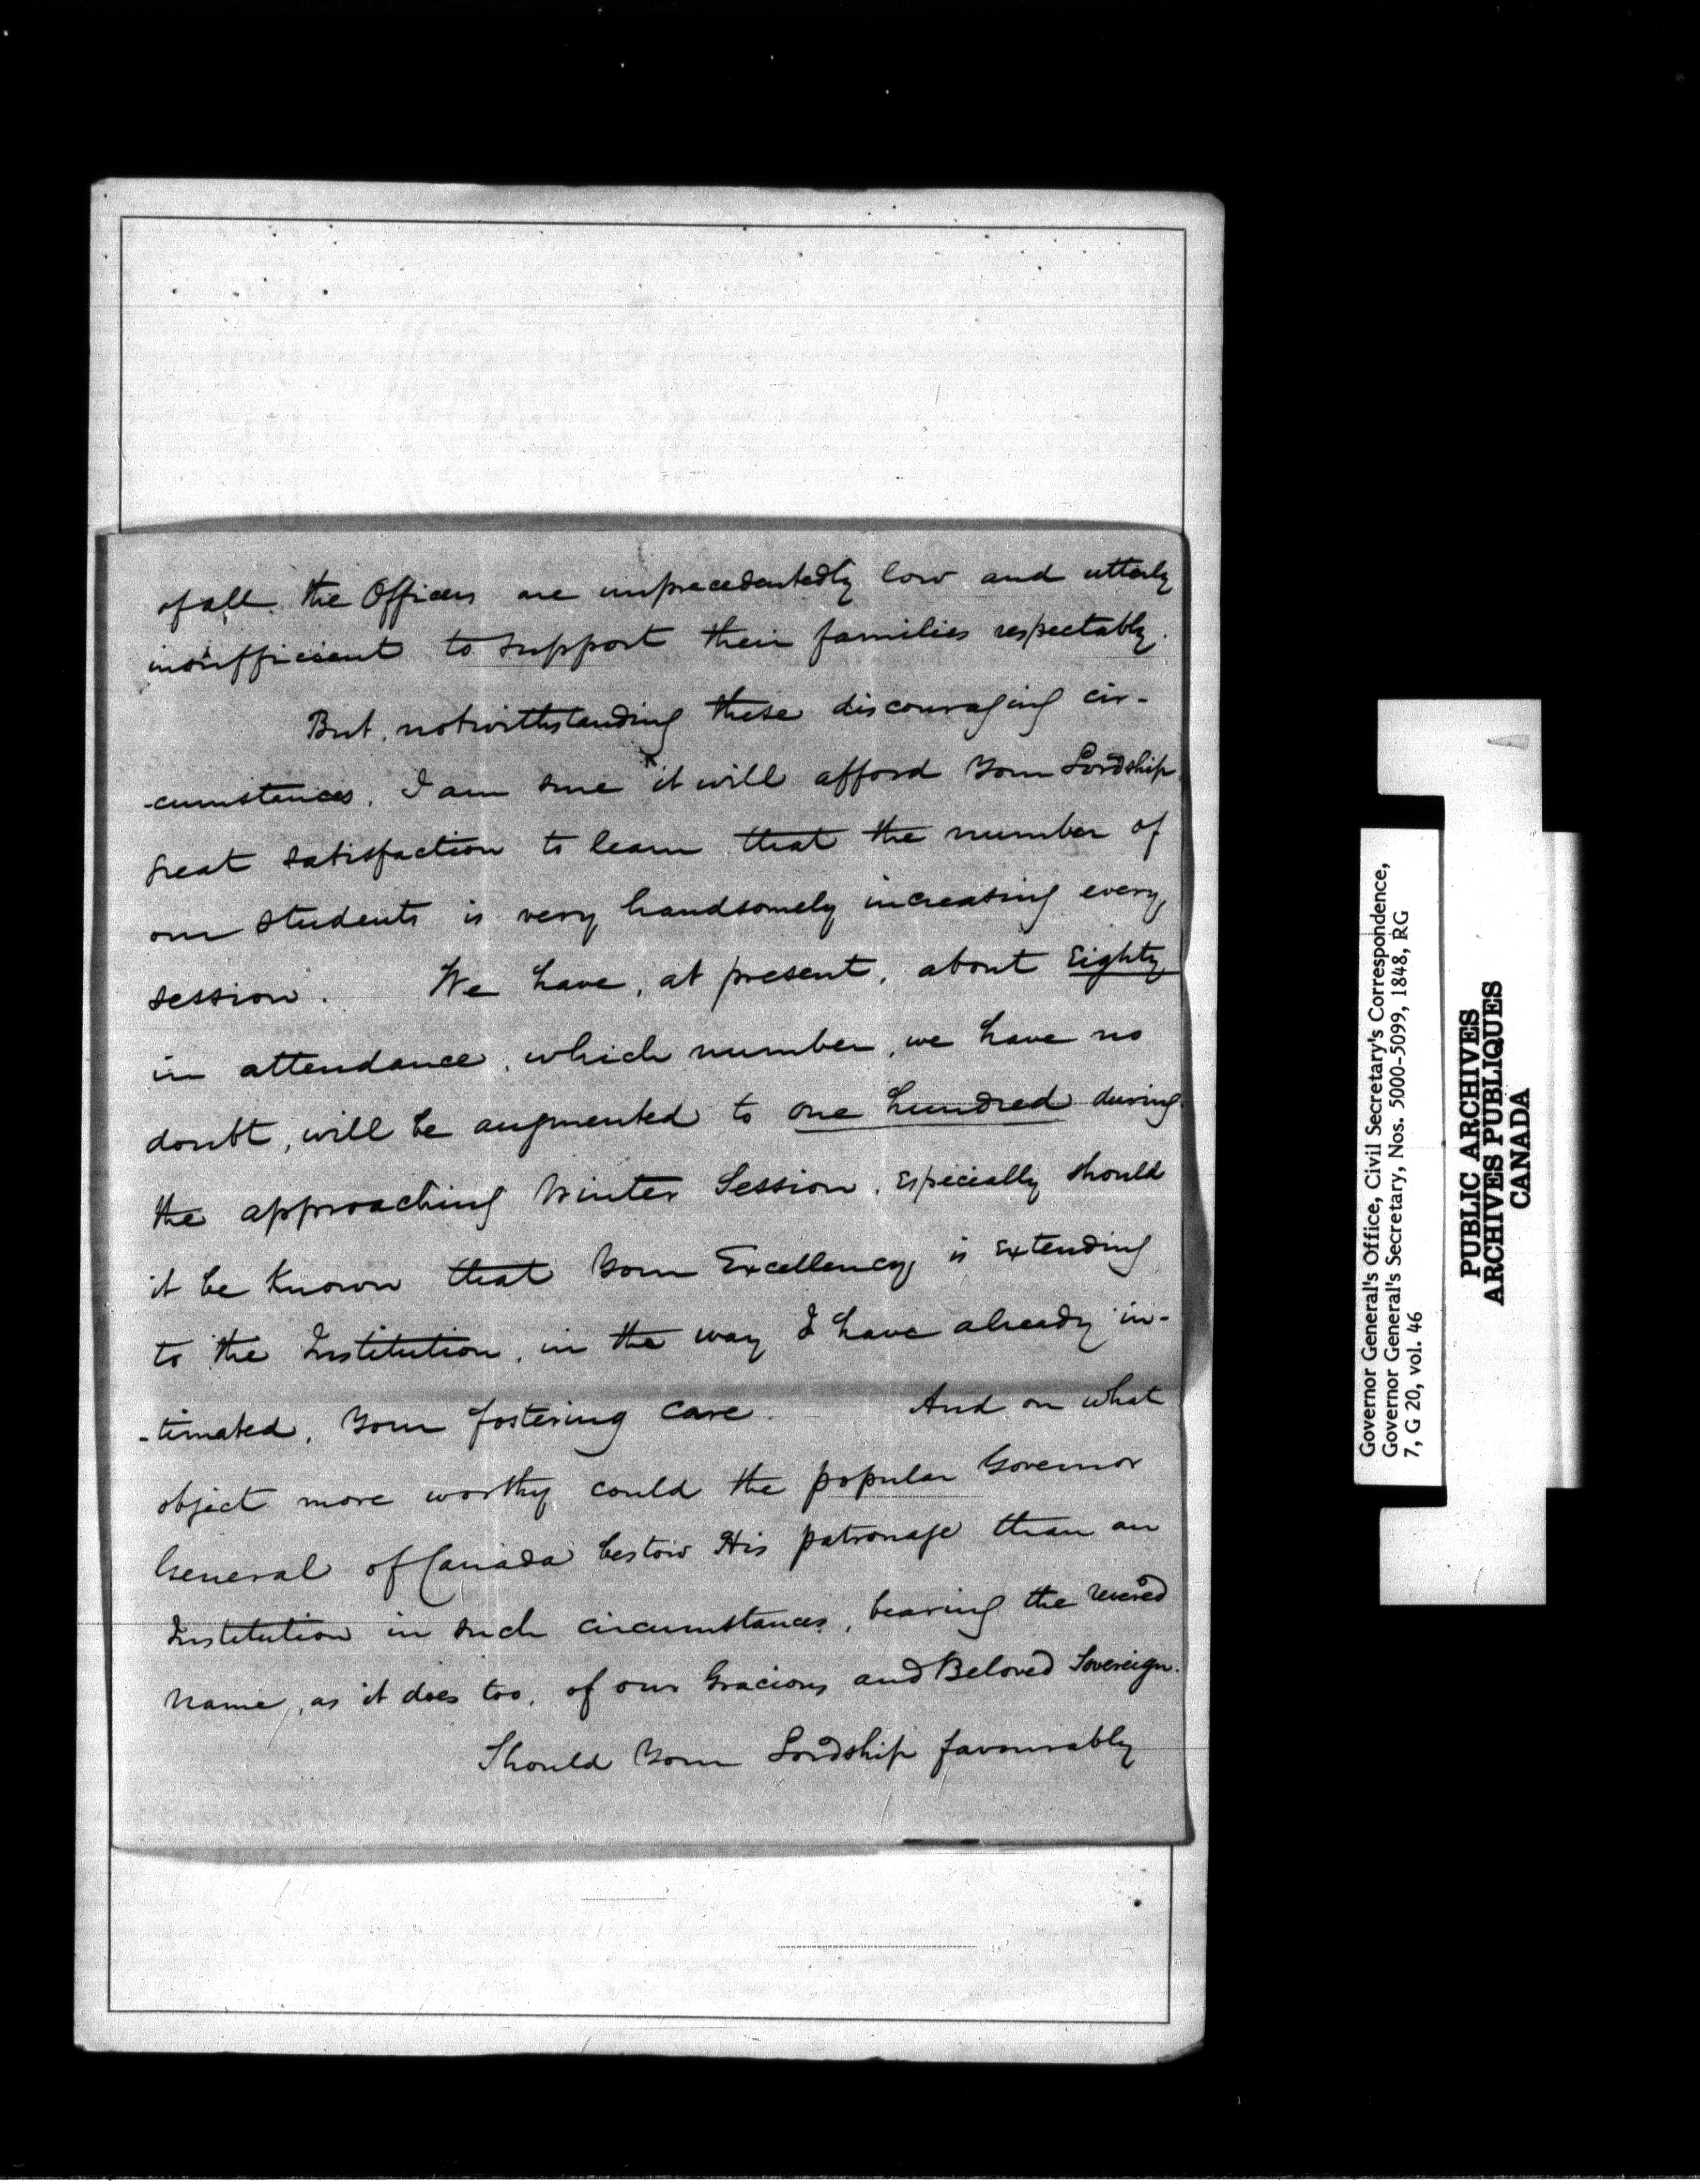 of all the Officers are unprecedentedly low and utterly
insufficient to support their families respectably.
But, notwithstanding these discouraging cir-
-cumstances, I am sure it will afford Your Lordship
great satisfaction to learn that the number of
our students is very handsomely increasing every
session. We have, at present, about Eighty
in attendance, which number, we have no
doubt, will be augmented to one hundred during
the approaching Winter Session, especially should
it be known that Your Excellency is extending
to the Institution, in the way I have already in-
-timated, Your fostering care. And on what
object more worthy could the popular Governor
General of Canada bestow His patronage than an
Institution in such circumstances, bearing the revered
name, as it does too, of our Gracious and Beloved Sovereign.
Should Your Lordship favourably
Governor General's Office, Civil Secretary's Correspondence,
Governor General's Secretary, Nos. 5000-5099, 1848, RG
7, G 20, vol. 46
PUBLIC ARCHIVES
ARCHIVES PUBLIQUES
CANADA